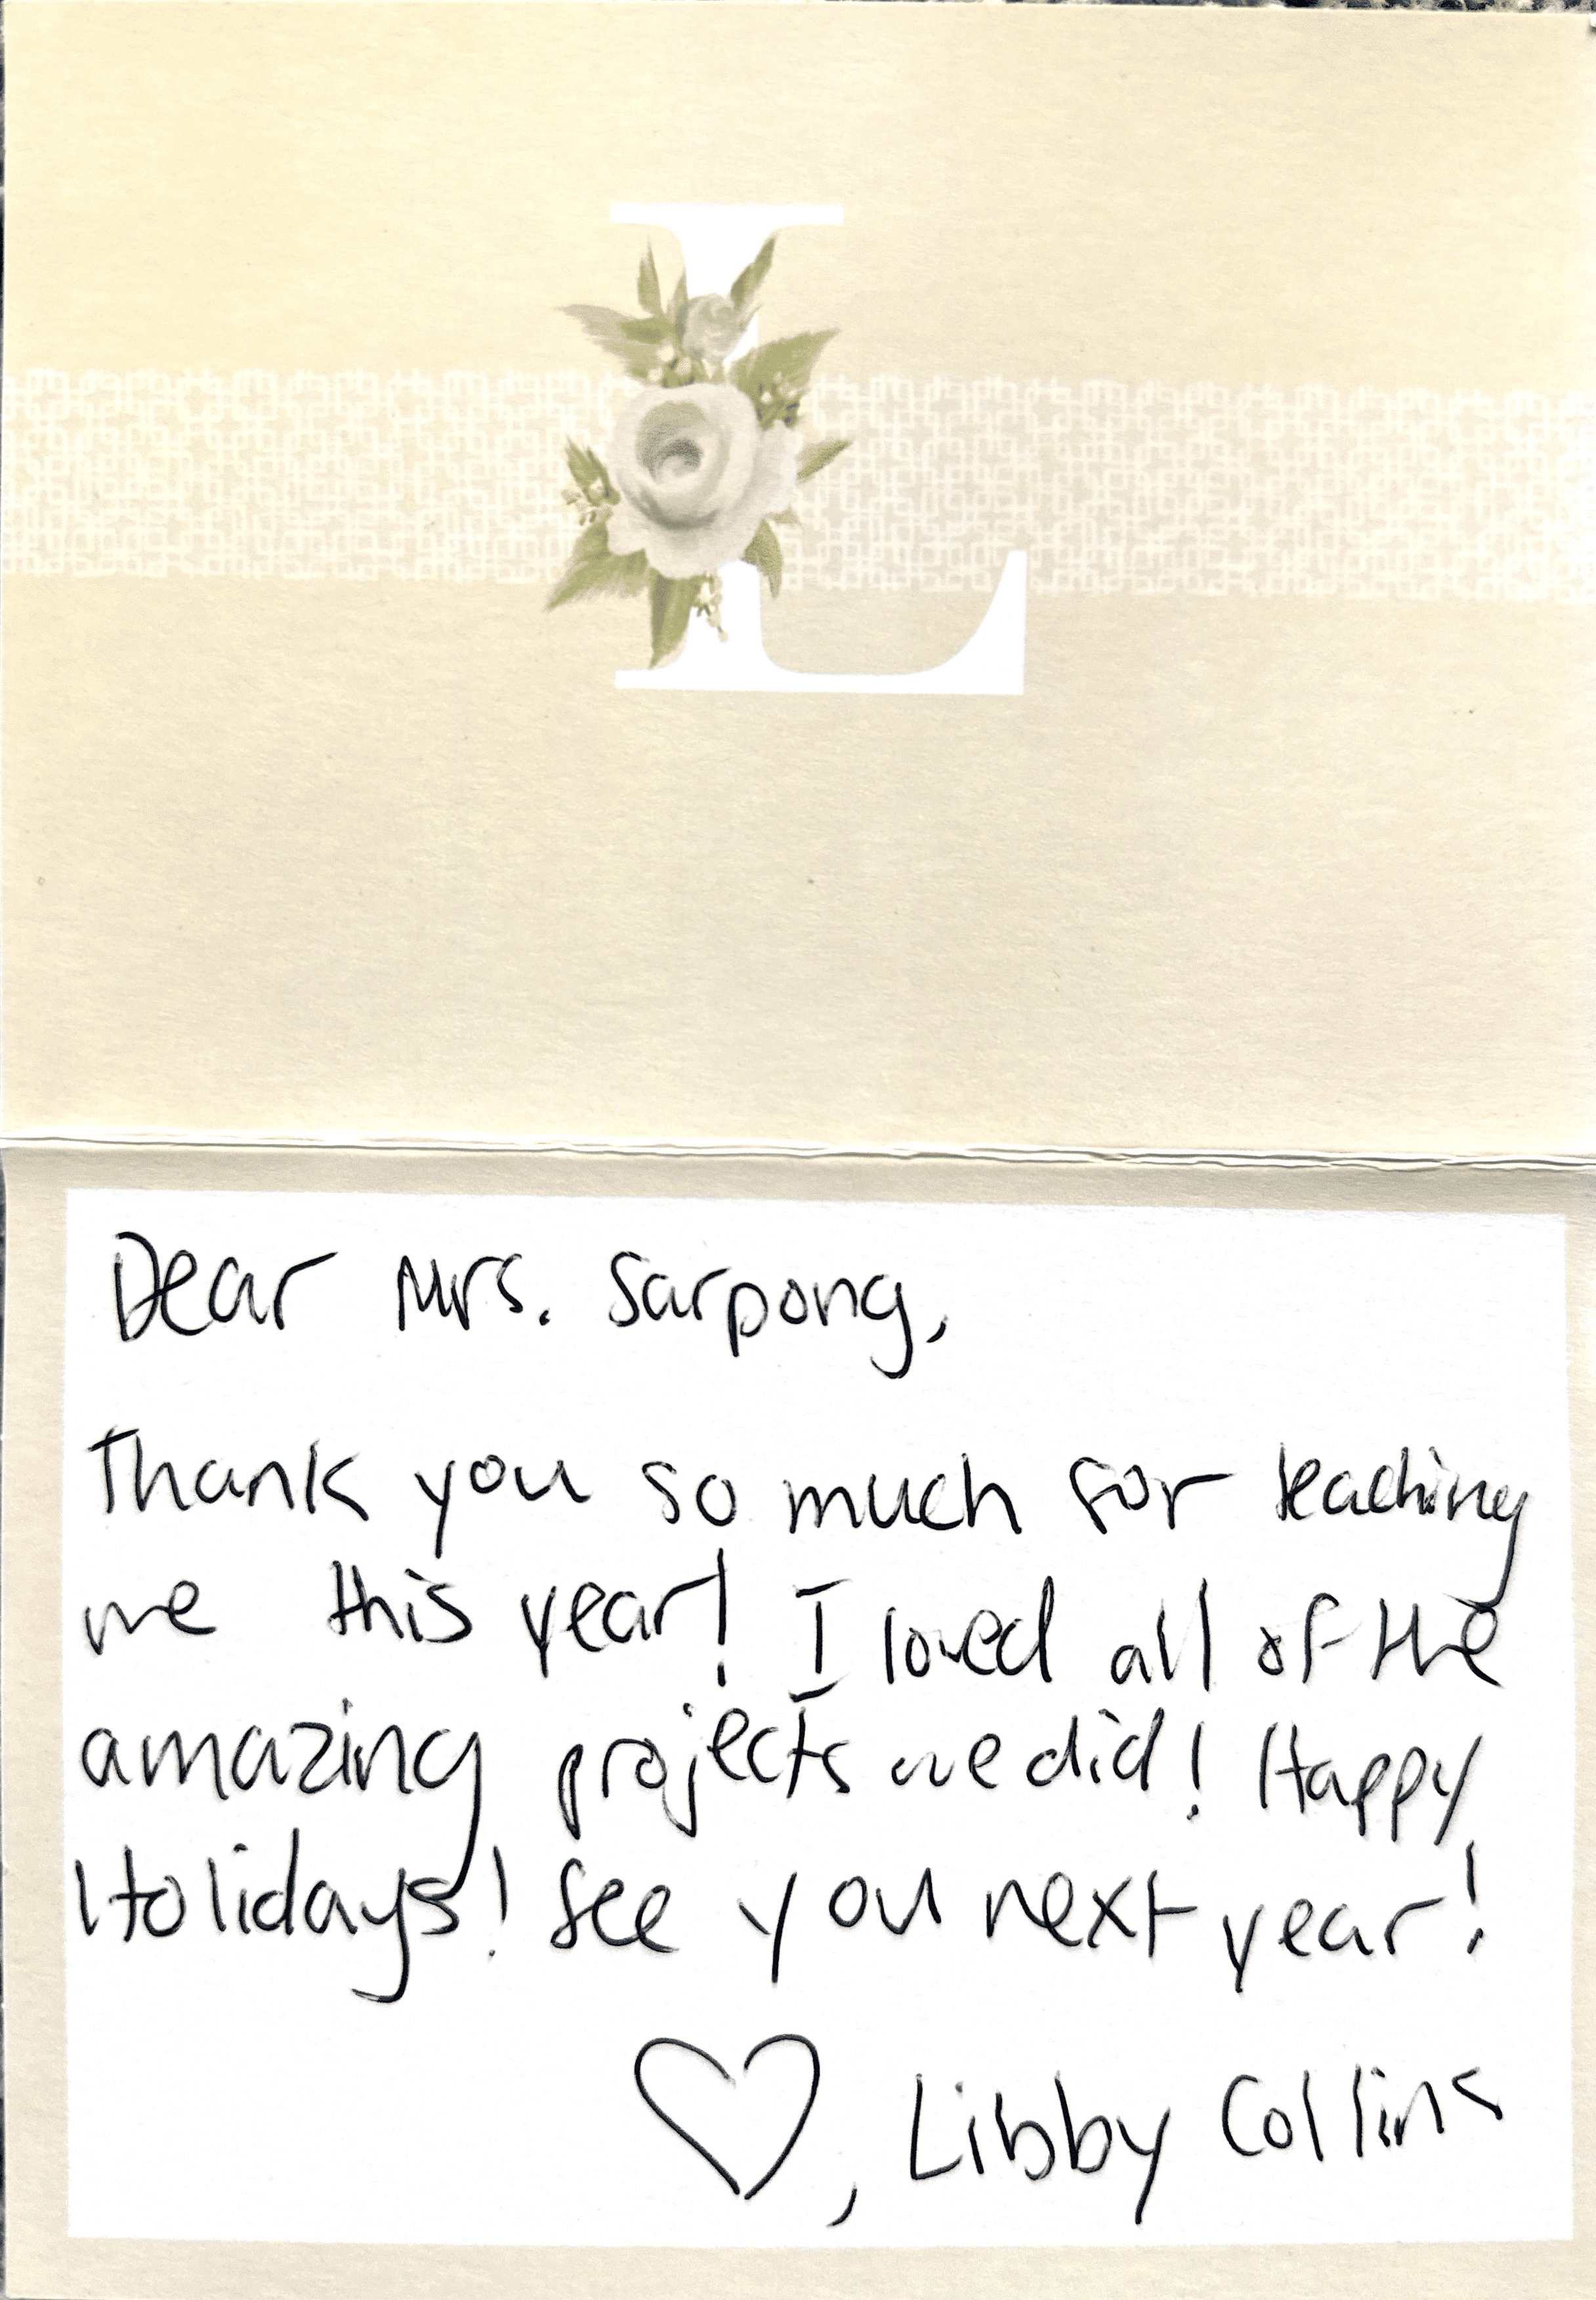 L
Dear Mrs. Sarpong,
Thank you so much for teaching
me this year! I loved all of the
amazing projects we did! Happy
Holidays! See you next year!
♡, Libby Collins